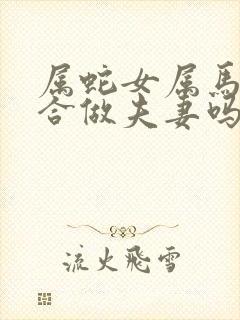 属蛇女属馬
合做夫妻吗
流火飛雪